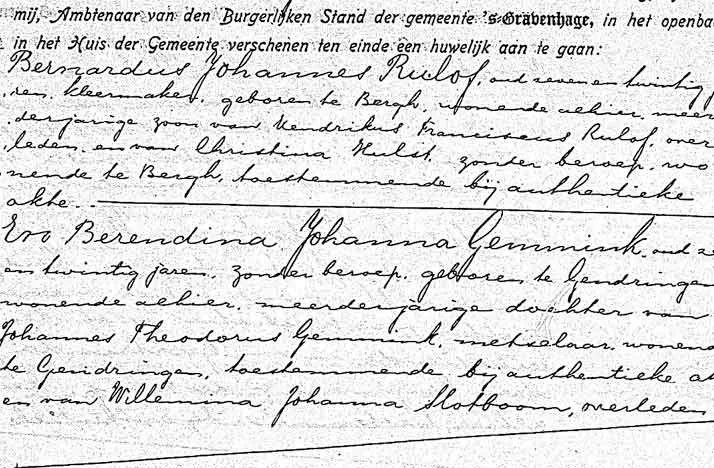 mij, Ambtenaar van den Burgerlijken Stand der gemeente 's-Gravenhage, in het openba
in het Huis der Gemeente verschenen ten einde een huwelijk aan te gaan:
Bernardus Johannes Rulof, oud zeven en twintig j
ren, kleermaker, geboren te Bergh, wonende alhier, meer
derjarige zoon van Hendrikus Franciscus Rulof, over
leden, en van Christina Hulst, zonder beroep, wo
nende te Bergh, toestemmende bij authentieke
akte.
En Berendina Johanna Gemmink, oud z
en twintig jaren, zonder beroep, geboren te Gendringen
wonende alhier, meerderjarige dochter van
Johannes Theodorus Gemmink, metselaar, wonend
te Gendringen, toestemmende bij authentieke ak
en van Willemina Johanna Slotboom, overleden